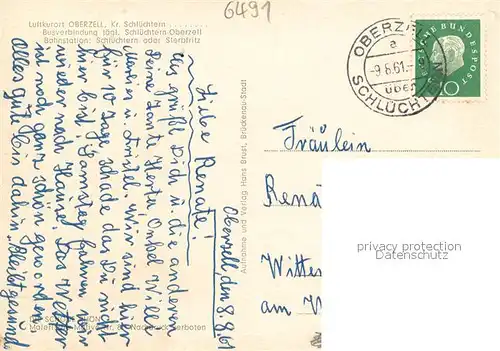 6491
Luftkurort OBERZELL, Kr. Schlüchtern
Busverbindung tägl. Schlüchtern-Oberzell
Bahnstation: Schlüchtern oder Sterbfritz
OBERZELL
a
-9.8.61.-
über
SCHLÜCHTERN
DEUTSCHE BUNDESPOST
10
Oberzell, den 8.8.61
Liebe Renate!
Es grüßt Dich u. die anderen
Deine Tante Herta Onkel Willi
u. wir sind hier
für 10 Tage schade das Du nicht
hier bist, Samstag fahren wir
wieder nach Hause. Das Wetter
ist noch ganz schön geworden.
Alles gute bis dahin, bleibt gesund
Aufnahme und Verlag Hans Brust, Brückenau-Stadt
Nachdruck verboten
Fräulein
Rená
Wittes
am W
privacy protection
Datenschutz